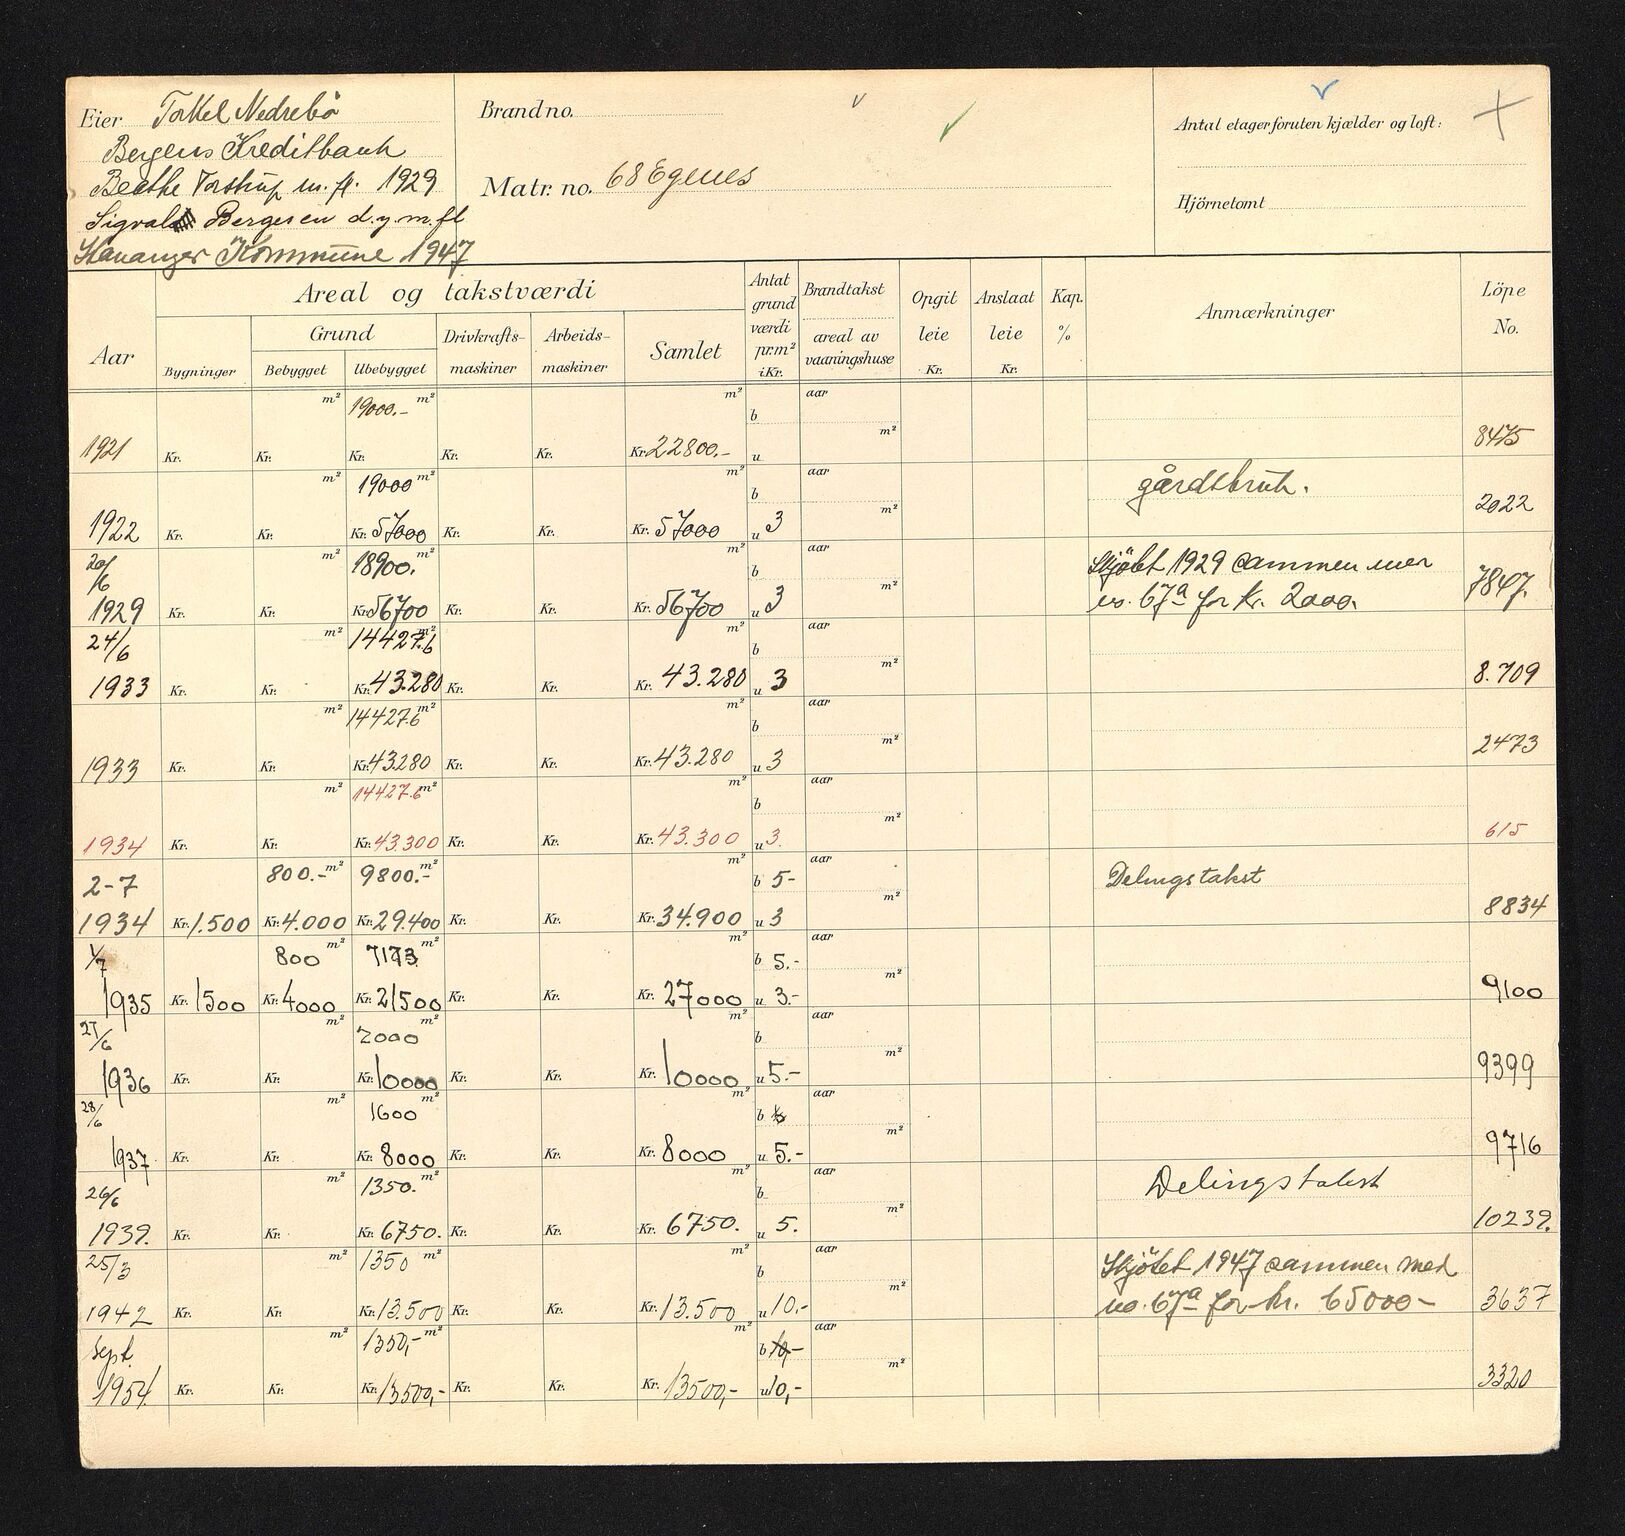 Eier Torkel Nedrebö
Bergens Kreditbank
Beathe Torstrup m. fl. 1929
Sigval Bergesen d.y. m.fl
Stavanger Kommune 1947
Brandno. v
Matr. no. 68 Egenes
Antal etager foruten kjælder og loft:
Hjörnetomt
Aar
Areal og takstværdi
Bygninger
Grund
Bebygget Ubebygget
Drivkrafts-maskiner
Arbeids-maskiner
Samlet
Antat grund værdi pr.m² i Kr.
Brandtakst
areal av vaaningshuse
Opgit leie Kr.
Anslaat leie Kr.
Kap. %
Anmærkninger
Löpe No.
m² 19000.- m² m² b aar
1921 Kr. Kr. Kr. Kr. Kr. Kr. 22800.- u m² 8475
m² 19000 m² m² b aar gårdsbruk.
1922 Kr. Kr. Kr. 57000 Kr. Kr. Kr. 57000 u 3 m² 2022
20/6 m² 18900. m² m² b aar Skjöbt 1929 sammen med
1929 Kr. Kr. Kr. 56700 Kr. Kr. Kr. 56700 u 3 m² no. 67a for kr. 2000. 7847.
24/6 m² 14427.6 m² m² b aar
1933 Kr. Kr. Kr. 43.280 Kr. Kr. Kr. 43.280 u 3 m² 8.709
m² 14427.6 m² m² b aar
1933 Kr. Kr. Kr. 43280 Kr. Kr. Kr. 43.280 u 3 m² 2473
m² 14427.6 m² m² b aar
1934 Kr. Kr. Kr. 43.300 Kr. Kr. Kr. 43.300 u 3. m² 615
2-7 800.- m² 9800.- m² m² b 5- aar Delingstakst
1934 Kr. 1.500 Kr. 4.000 Kr. 29.400 Kr. Kr. Kr. 34.900 u 3 m² 8834
1/7 800 m² 7173 m² m² b 5.- aar
1935 Kr. 1500 Kr. 4000 Kr. 21500 Kr. Kr. Kr. 27000 u 3.- m² 9100
27/6 m² 2000 m² m² b aar
1936 Kr. Kr. Kr. 10000 Kr. Kr. Kr. 10000 u 5.- m² 9399
28/6 m² 1600 m² m² b aar
1937 Kr. Kr. Kr. 8000 Kr. Kr. Kr. 8000 u 5.- m² 9716
26/6 m² 1350. m² m² b aar Delingstakst
1939. Kr. Kr. Kr. 6750. Kr. Kr. Kr. 6750. u 5. m² 10239.
25/3 m² 1350 m² m² b aar Skjötet 1947 sammen med
1942 Kr. Kr. Kr. 13.500 Kr. Kr. Kr. 13.500 u 10.- m² no. 67a for kr. 65000- 3637
Sept. m² 1350,- m² m² b 10,- aar
1954. Kr. Kr. Kr. 13500,- Kr. Kr. Kr. 13500,- u 10,- m² 3320